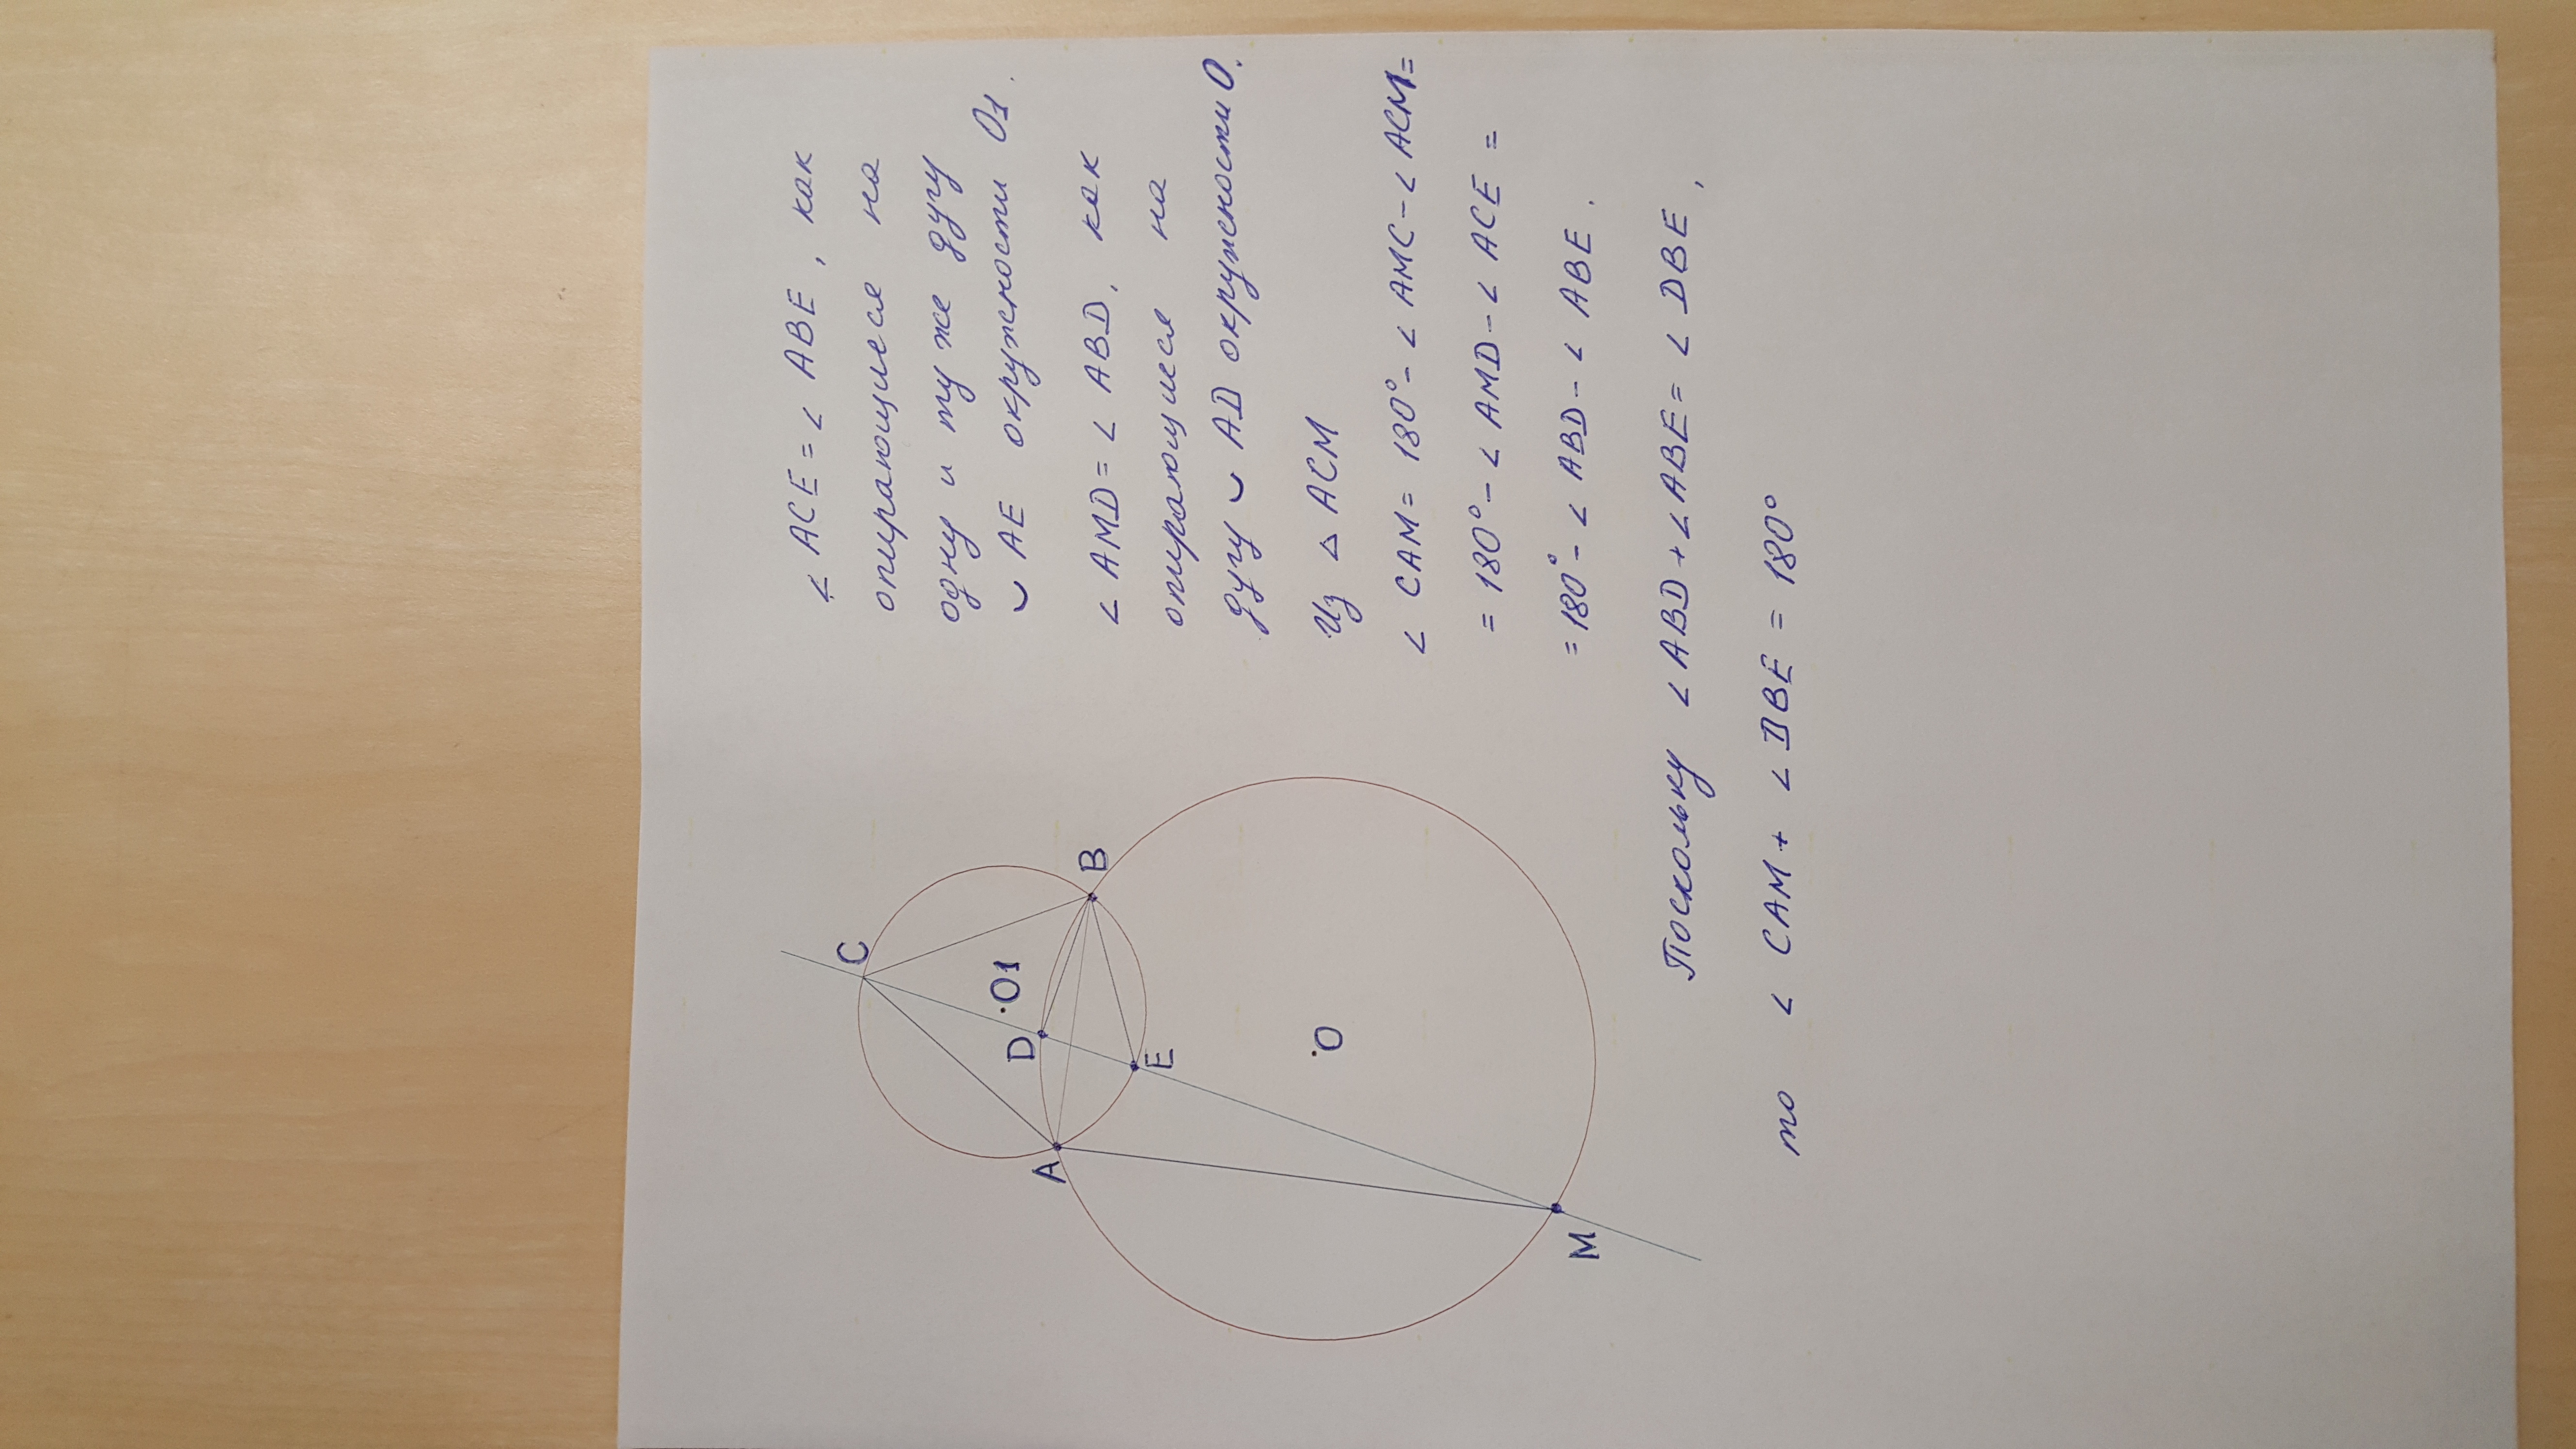 ∠ ACE = ∠ ABE, как
опирающиеся на
одну и ту же дугу
◡ AE окружности O1.
∠ AMD = ∠ ABD, как
опирающиеся на
дугу ◡ AD окружности O.
Из △ ACM
∠ CAM = 180° - ∠ AMC - ∠ ACM =
= 180° - ∠ AMD - ∠ ACE =
= 180° - ∠ ABD - ∠ ABE.
Поскольку ∠ ABD + ∠ ABE = ∠ DBE,
то ∠ CAM + ∠ DBE = 180°
C
B
O1
D
E
A
O
M